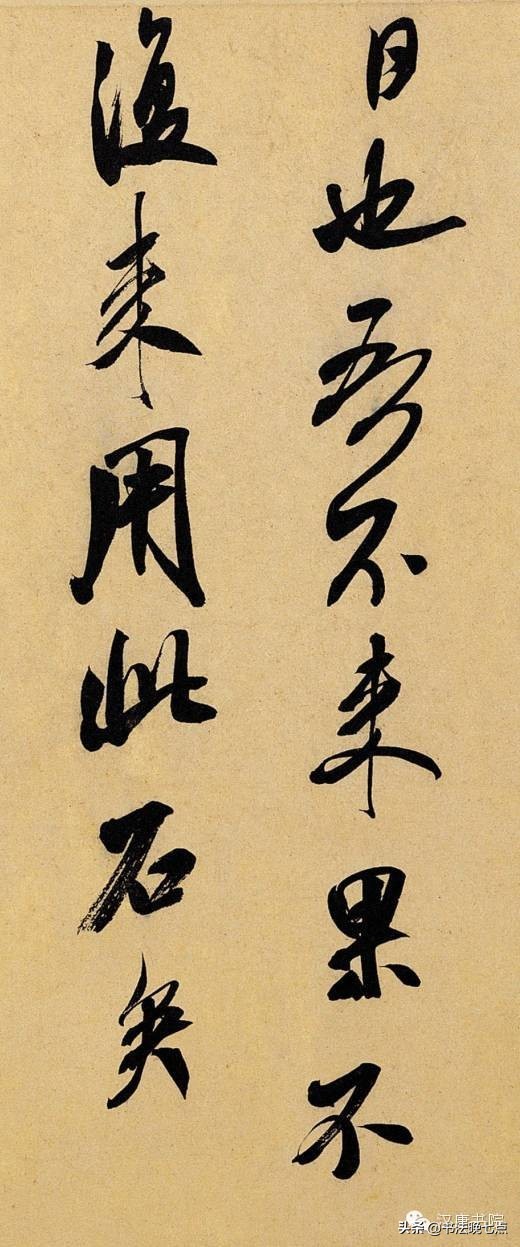 日也吾不来果不
復来用此石矣
汉唐书院
头条 @书法晚七点